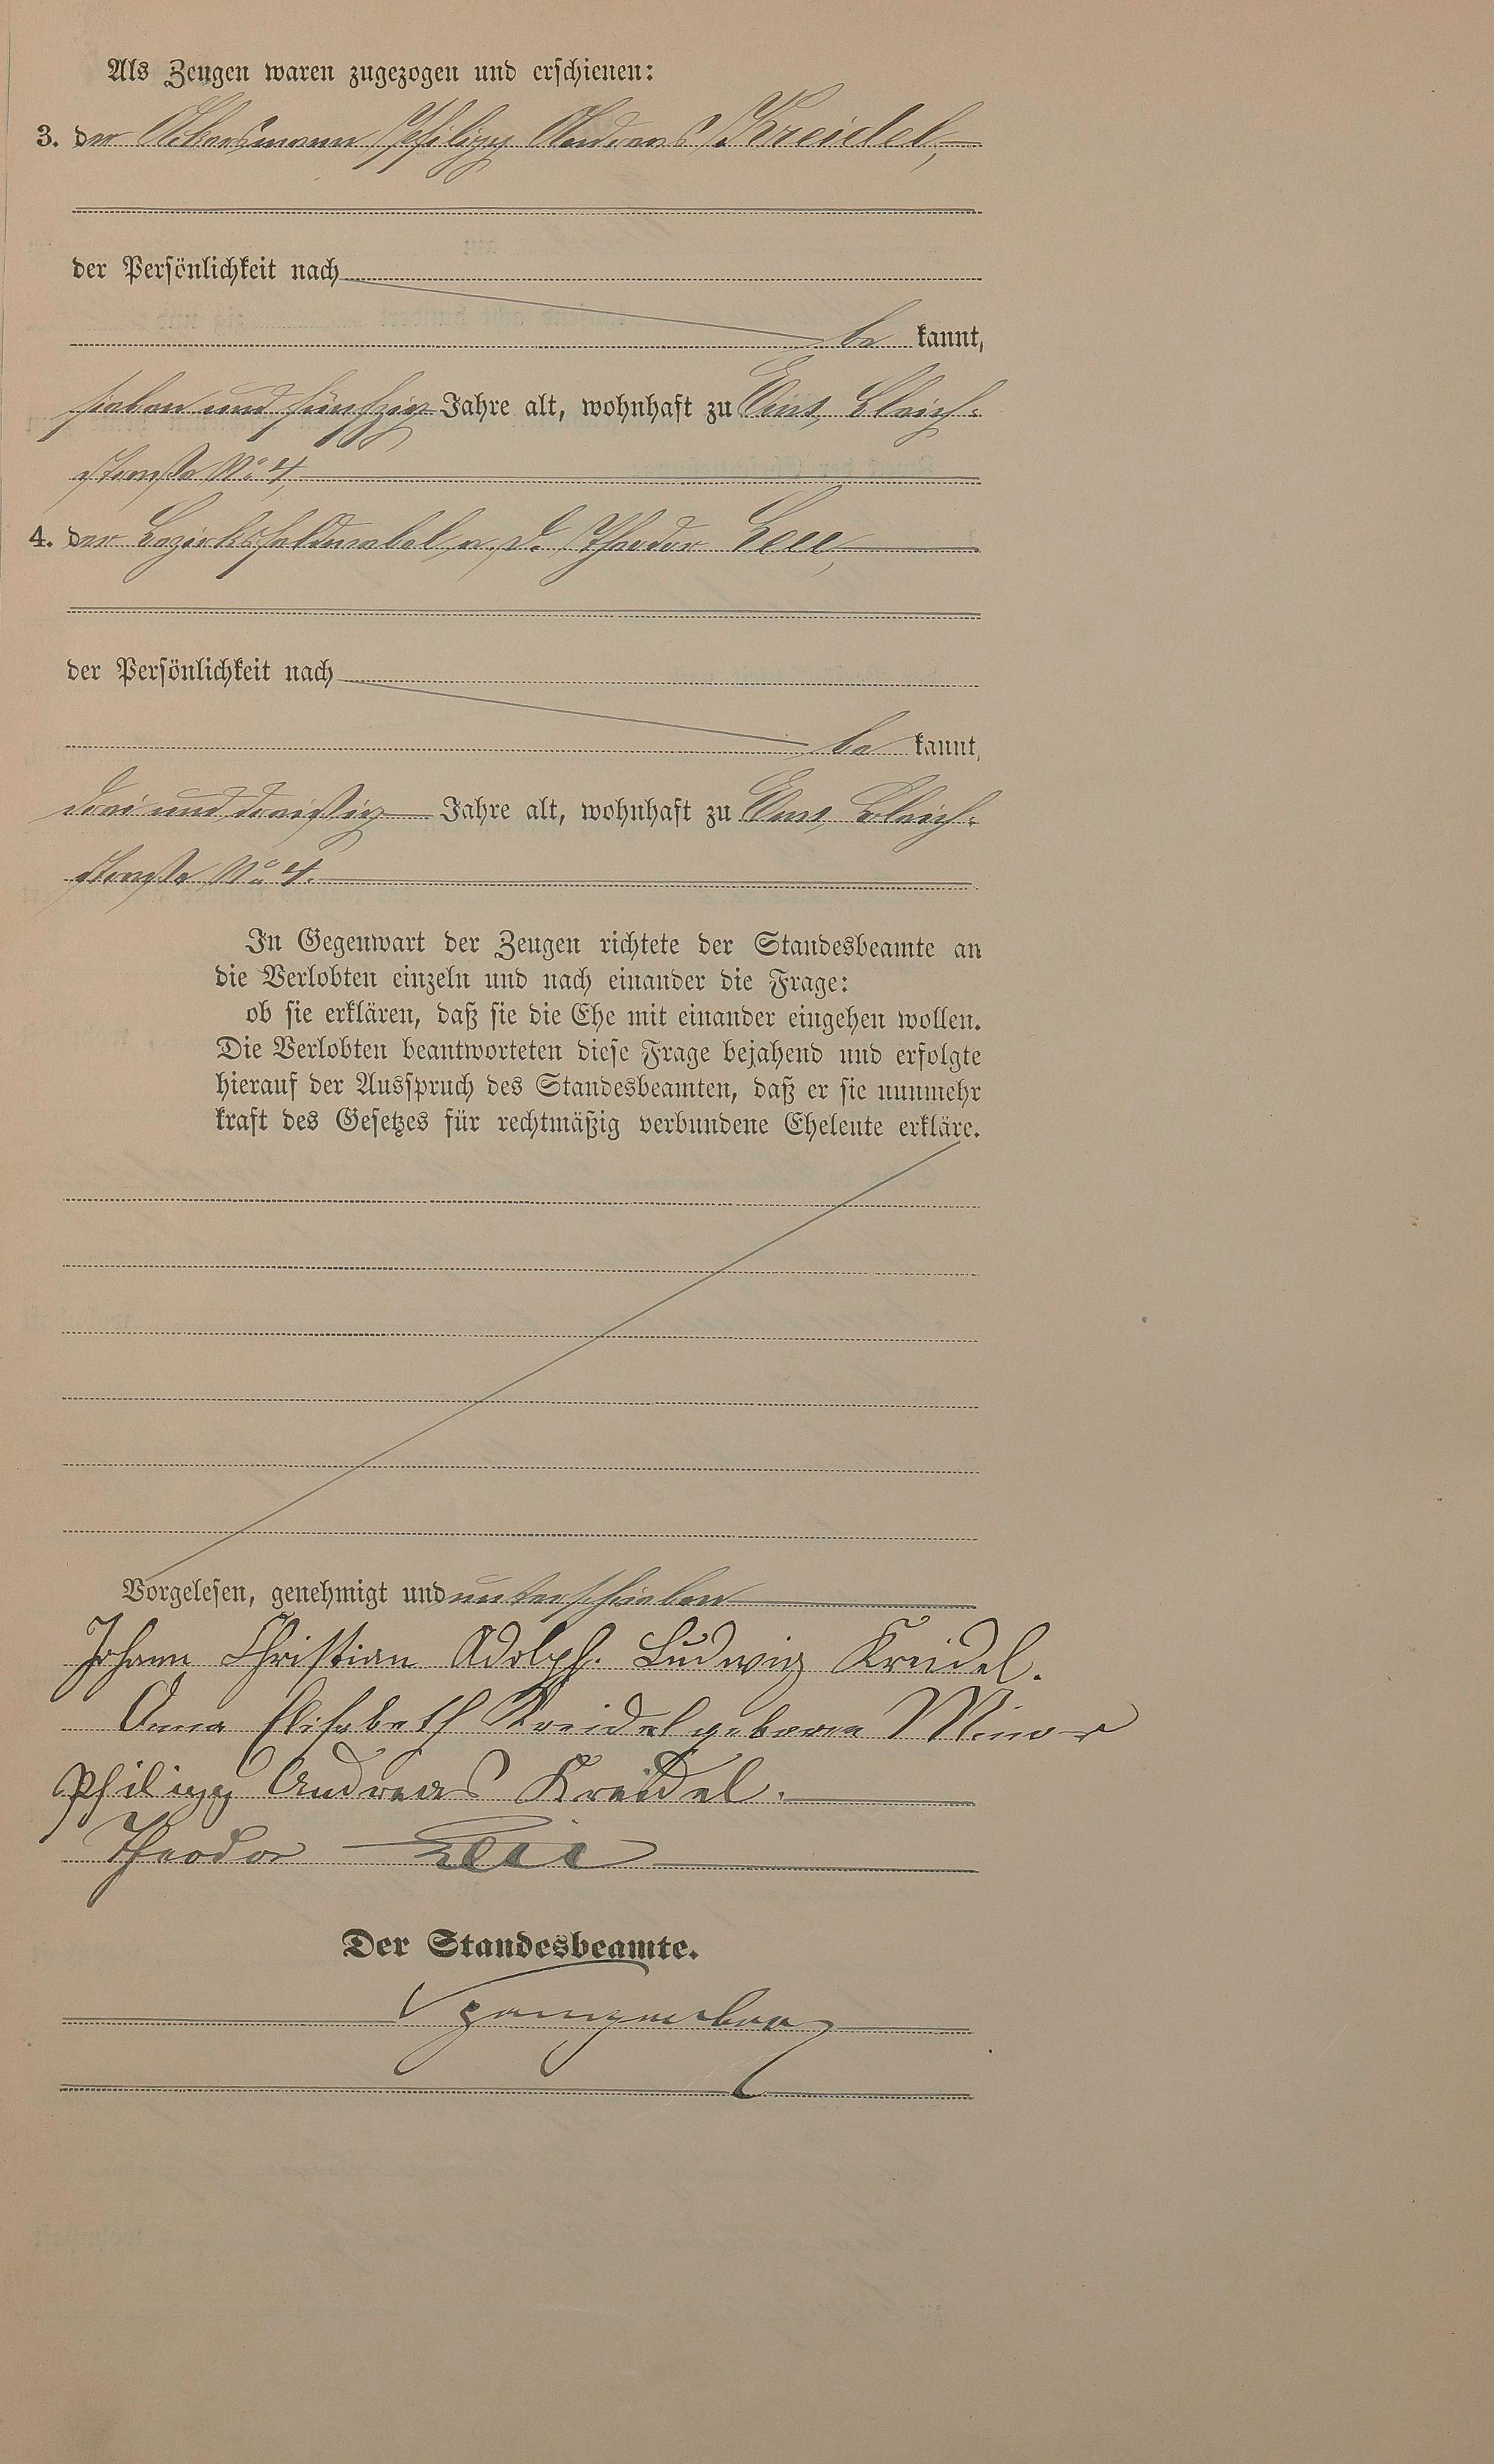 Als Zeugen waren zugezogen und erschienen:
3. der Ackersmann Philipp Andreas Kreidel,
der Persönlichkeit nach
be kannt,
sieben und fünfzig Jahre alt, wohnhaft zu Ems, Bleich-
straße No 4,
4. der Bezirksfeldwebel a. D. Theodor
der Persönlichkeit nach
be kannt,
drei und dreißig Jahre alt, wohnhaft zu Ems, Bleich-
straße No 4.
In Gegenwart der Zeugen richtete der Standesbeamte an
die Verlobten einzeln und nach einander die Frage:
ob sie erklären, daß sie die Ehe mit einander eingehen wollen.
Die Verlobten beantworteten diese Frage bejahend und erfolgte
hierauf der Ausspruch des Standesbeamten, daß er sie nunmehr
kraft des Gesetzes für rechtmäßig verbundene Eheleute erkläre.
Vorgelesen, genehmigt und unterschrieben
Johann Christian Adolph. Ludwig Kreidel.
Anna Elisabeth Kreidel geborene Minor
Philipp Andreas Kreidel.
Theodor
Der Standesbeamte.